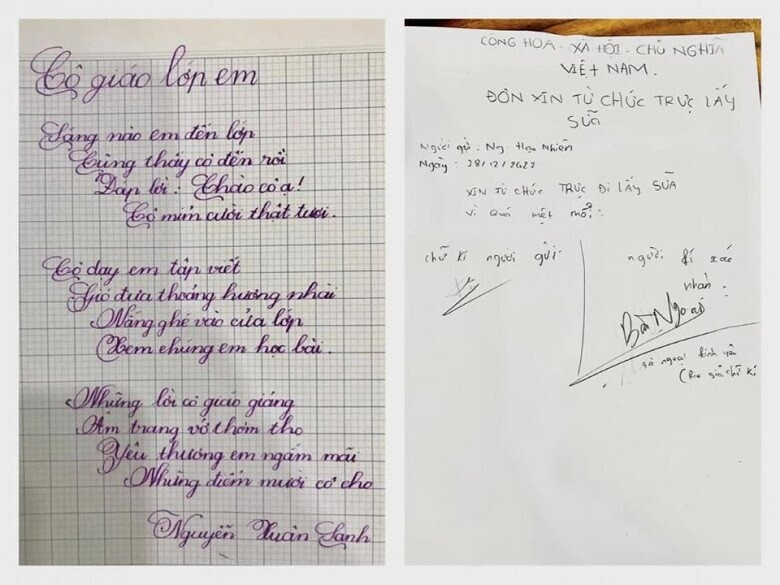 Cô giáo lớp em
Sáng nào em đến lớp
Cũng thấy cô đến rồi
Đáp lời: Chào cô ạ!
Cô mỉm cười thật tươi.
Cô dạy em tập viết
Gió đưa thoảng hương nhài
Nắng ghé vào cửa lớp
Xem chúng em học bài.
Những lời cô giáo giảng
Ấm trang vở thơm tho
Yêu thương em ngắm mãi
Những điểm mười cô cho
Nguyễn Xuân Sanh
CỘNG HOA - XÃ HỘI - CHỦ NGHĨA
VIỆT NAM.
ĐƠN XIN TỪ CHỨC TRỰC LẤY
SỮA
Người gửi : Ng. Hạo Nhiên
Ngày : 28/12/2022
XIN TỪ CHỨC TRỰC ĐI LẤY SỮA
vì quá mệt mỏi.
chữ kí người gửi.
người kí xác
nhận :
Bà Ngoại
bà ngoại kính yêu
chữ kí